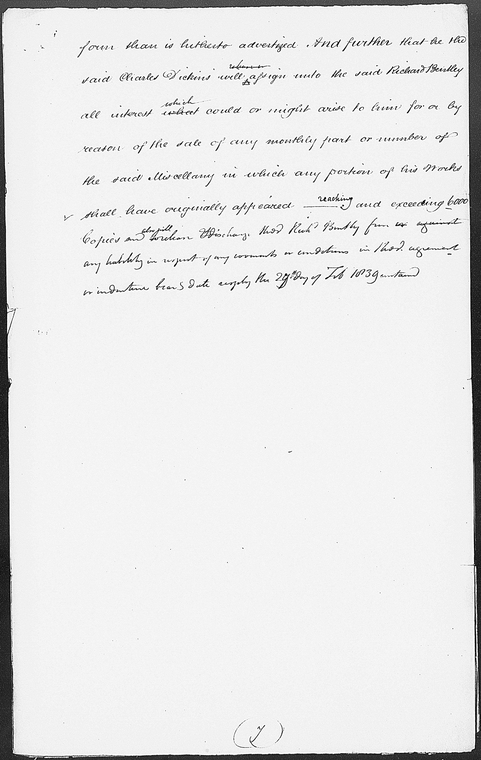 form than is hitherto advertized And further that he the
said Charles Dickins will assign unto the said Richard Bentley
all interest which could or might arise to him for or by
reason of the sale of any monthly part or number of
the said Miscellany in which any portion of his Works
shall have originally appeared reaching and exceeding 6000
Copies and discharge the sd Richd Bentley from against
any liability in respect of any covenants or conditions in the sd agreement
or indenture bearg date the 27th day of Feb 1839
(7)